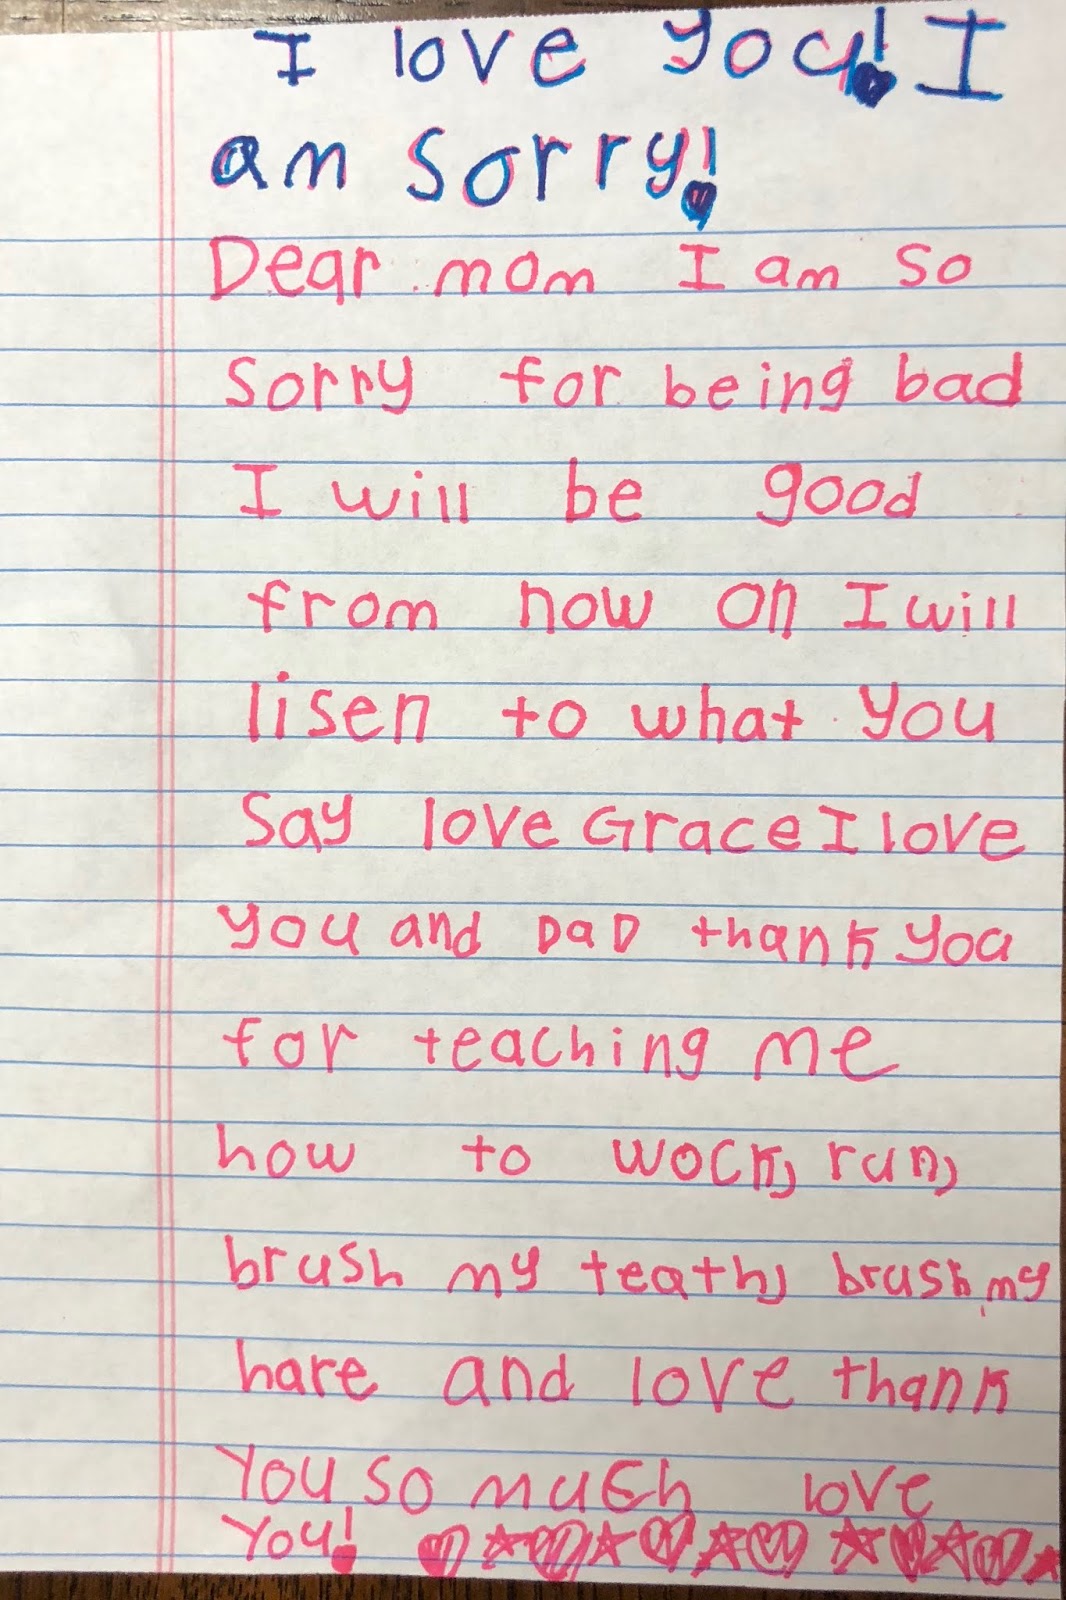 I love you! I
am sorry!
Dear mom I am so
sorry for being bad
I will be good
from now on I will
lisen to what you
say love Grace I love
you and DaD thank you
for teaching me
how to wock, run,
brush my teath, brush my
hare and love thank
you so much love
you!